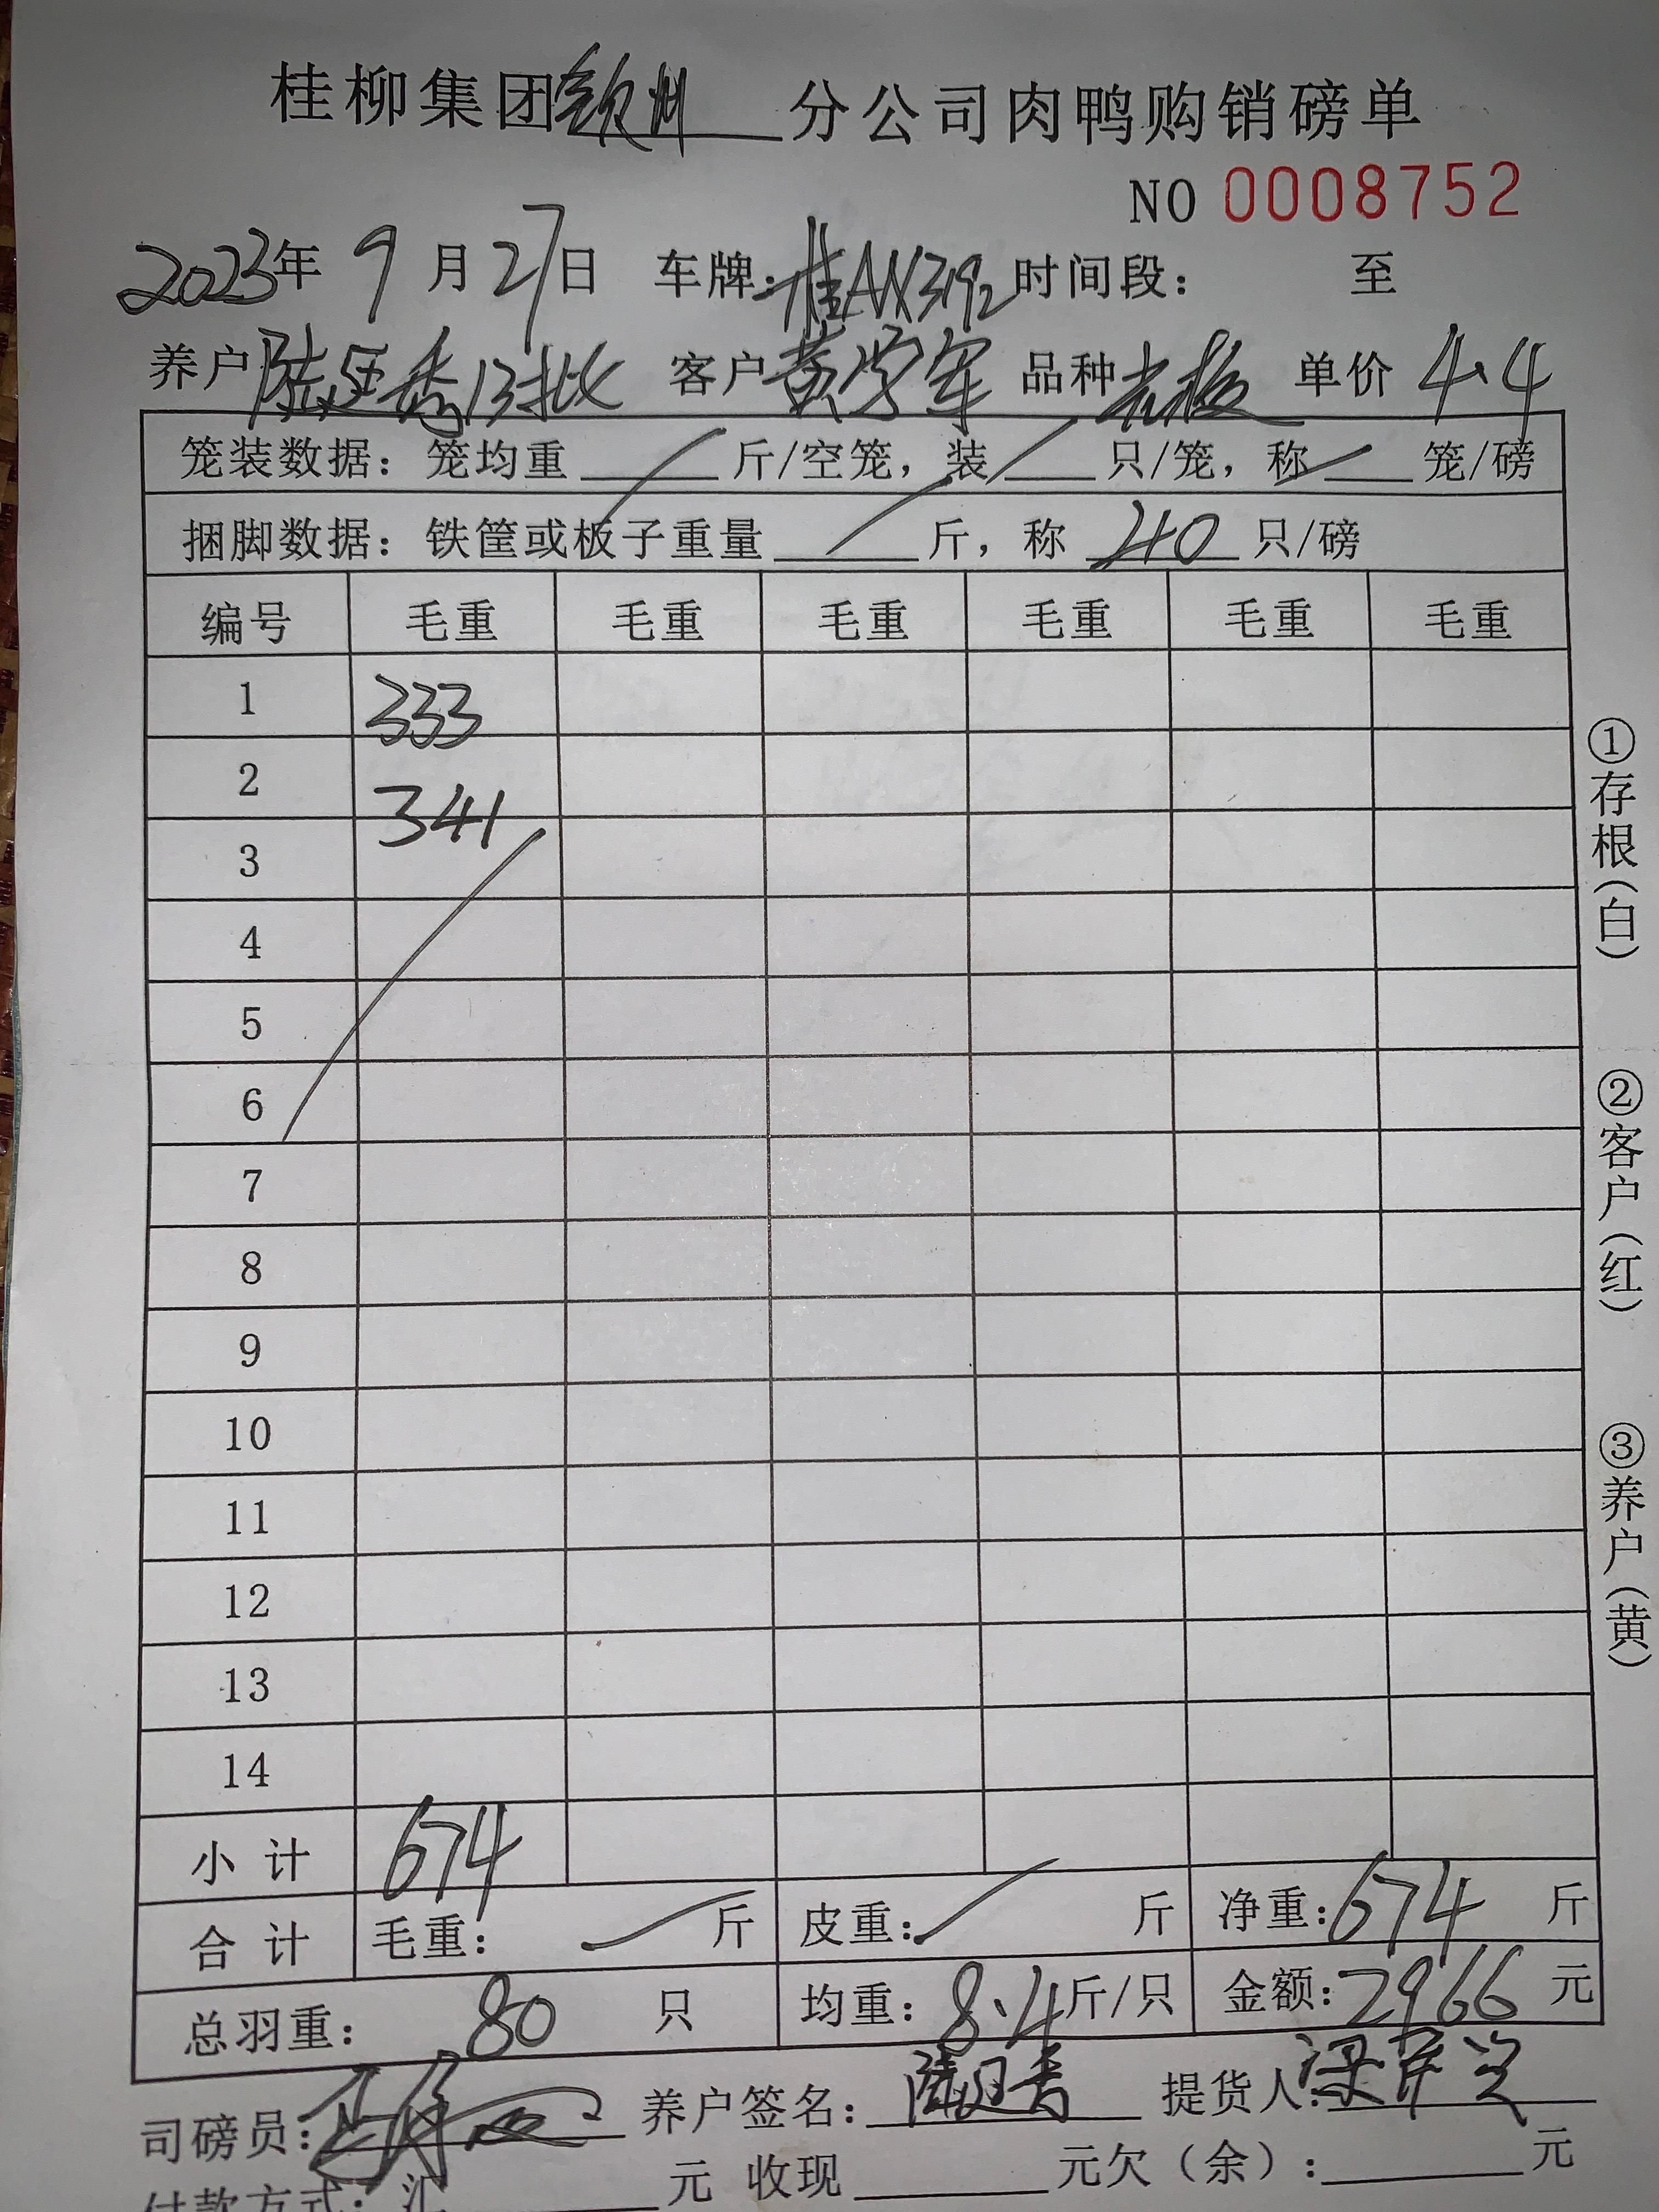 桂柳集团钦州分公司肉鸭购销磅单
NO 0008752
2023年 9月27日 车牌:桂AX3192 时间段: 至
养户 陆廷香13批 客户 黄学军 品种 单价 4.4
笼装数据: 笼均重 / 斤/空笼, 装 / 只/笼, 称 / 笼/磅
捆脚数据: 铁筐或板子重量 / 斤, 称 40 只/磅
编号 毛重 毛重 毛重 毛重 毛重 毛重
1 333
2 341
3
4
5
6
7
8
9
10
11
12
13
14
小计 674
合计 毛重: / 斤 皮重: / 斤 净重: 674 斤
总羽重: 80 只 均重: 8.4 斤/只 金额: 2966 元
司磅员: 养户签名: 提货人:
付款方式: 汇 元 收现 元欠(余): 元
①存根(白)
②客户(红)
③养户(黄)